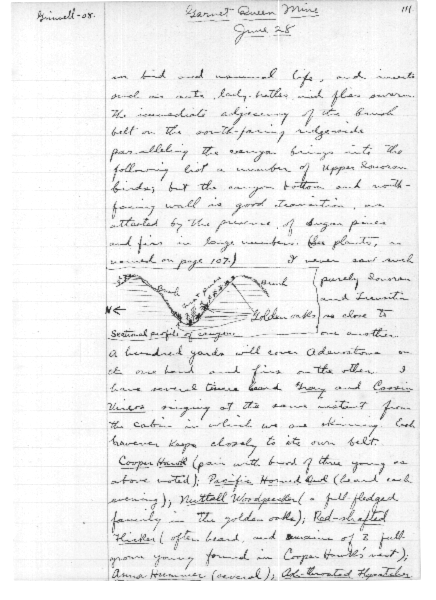 Grinnell-08.
Garnet Queen Mine
111.
June 28
in bird and mammal life, and insects
such as ants, lady-bettles and flies swarm.
The immediate adjacency of the brush
belt on the south-facing ridgeside
paralleling the canyon brings into the
following list a number of Upper Sonoran
birds; but the canyon bottom and north-
facing wall is good transition, as
attested by the presence of sugar pines
and firs in large numbers. (See plants, as
named on page 107.) I never saw such
Brush
Brush
purely Sonoran
and Transition
N
Golden oaks
as close to
Sectional profile of canyon
one another
A hundred yards will cover Adenostoma on
one hand and firs on the other. I
have several times heard Gray and Cassin
Vireos singing at the same instant from
the cabin in which we are skinning. Each
however keeps closely to its own belt.
Cooper Hawk (pair with brood of three young as
above noted); Pacific Horned Owl (heard each
evening); Nuttall Woodpecker (a full fledged
family in the golden oaks); Red-shafted
Flicker (often heard, and remains of 2 full
grown young found in Cooper Hawk's nest);
Anna Hummer (several); Ash-throated Flycatcher